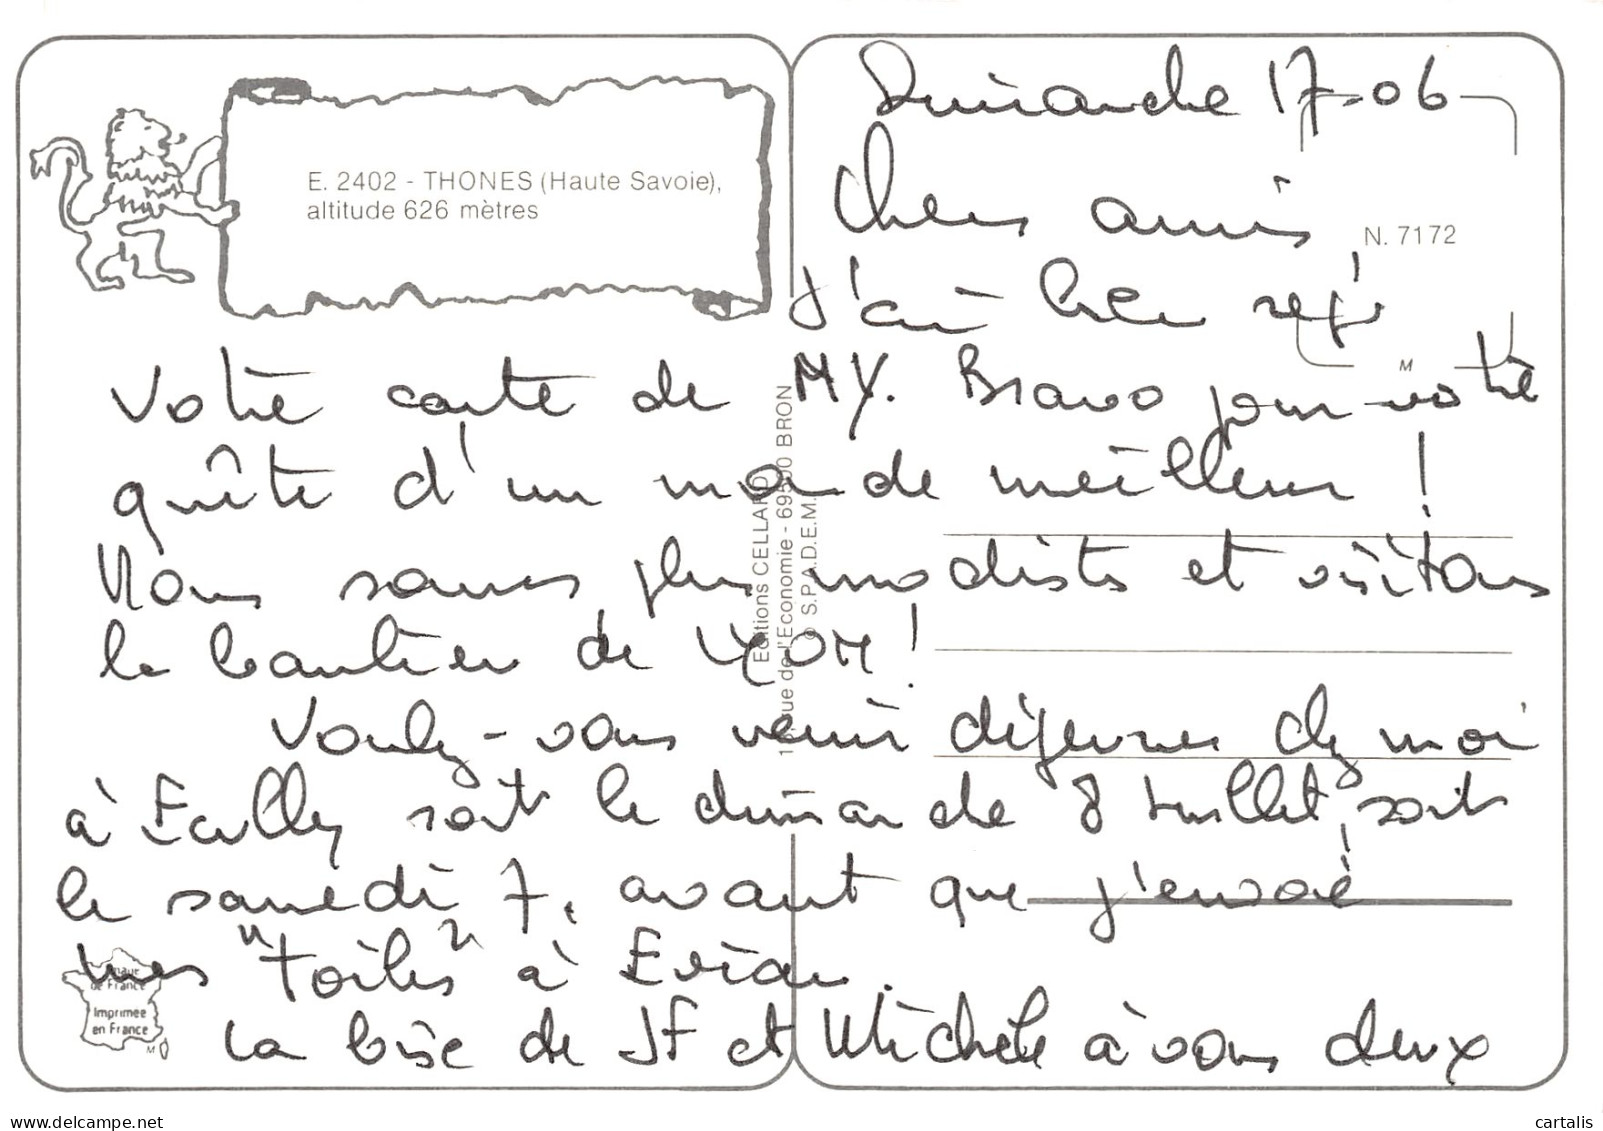 Dimanche 17-06
E. 2402 - THONES (Haute Savoie),
altitude 626 mètres
Chers amis
N. 7172
J'ai bien reçu
M
votre carte de NY. Bravo pour votre
quête d'un monde meilleur !
Nous sommes plus modestes et visitons
le quartier de LYON !
Voulez-vous venir déjeuner chez moi
à Ecully soit le dimanche 8 Juillet, soit
le samedi 7, avant que j'envoie
mes "toiles" à Evian.
La bise de JF et Michèle à vous deux
Editions CELLARD
rue de l'Economie - 69500 BRON
© S.P.A.D.E.M.
de France
Imprimée
en France
M
cartalis